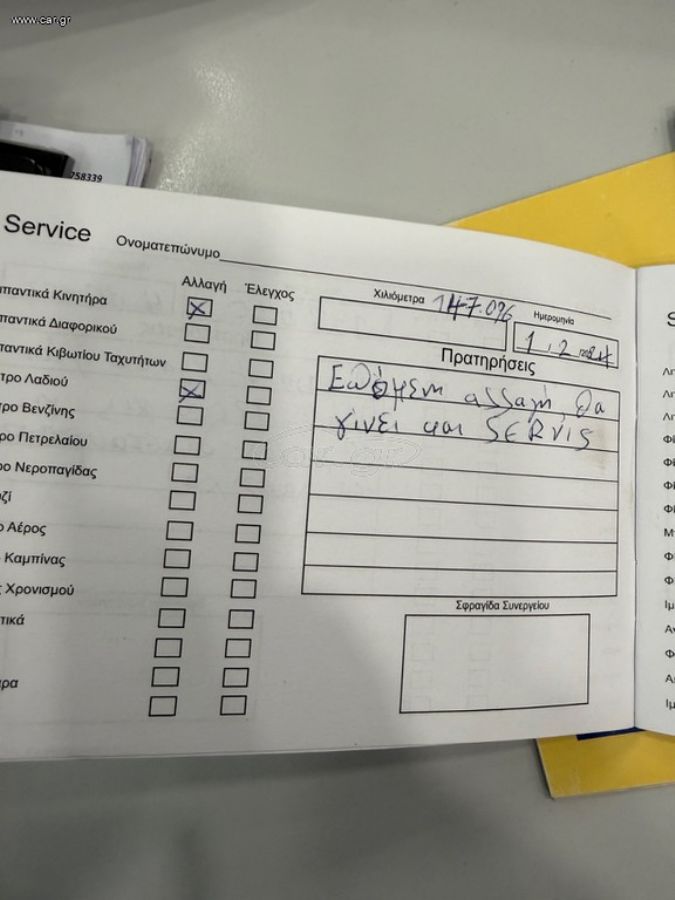 www.car.gr
758339
Service Ονοματεπώνυμο
Αλλαγή Έλεγχος
παντικά Κινητήρα
παντικά Διαφορικού
παντικά Κιβωτίου Ταχυτήτων
τρο Λαδιού
τρο Βενζίνης
ρο Πετρελαίου
ρο Νεροπαγίδας
ζί
ο Αέρος
Καμπίνας
ς Χρονισμού
τικά
ρα
Χιλιόμετρα 147.096
Ημερομηνία
1, 2, 2024
Πρατηρήσεις
Επόμενη αλλαγή θα
γίνει και SERVIS
Σφραγίδα Συνεργείου
car.gr
S
Λι
Λι
Λι
Φί
Φί
Φί
Φί
Μ
Φ
Φ
Ιμ
Αν
Φ
Α
Ιμ